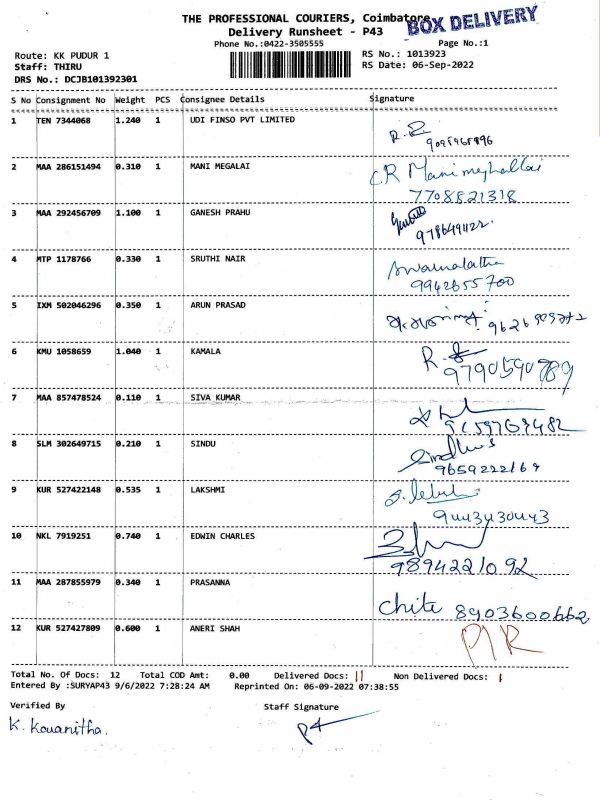 THE PROFESSIONAL COURIERS, Coimbatore
BOX DELIVERY
Delivery Runsheet - P43
Phone No.:0422-3505555
Page No.:1
Route: KK PUDUR 1
RS No.: 1013923
Staff: THIRU
RS Date: 06-Sep-2022
DRS No.: DCJB101392301
S No Consignment No Weight PCS Consignee Details Signature
1 TEN 7344068 1.240 1 UDI FINSO PVT LIMITED
2 MAA 286151494 0.310 1 MANI MEGALAI CR Manimeghallai
7708821318
3 MAA 292456709 1.100 1 GANESH PRAHU
4 MTP 1178766 0.330 1 SRUTHI NAIR Swarnalatha
9942655700
5 IXM 502046296 0.350 1 ARUN PRASAD
6 KMU 1058659 1.040 1 KAMALA
9790590789
7 MAA 857478524 0.110 1 SIVA KUMAR
8 SLM 302649715 0.210 1 SINDU Sindhu S
9659222169
9 KUR 527422148 0.535 1 LAKSHMI
9443430443
10 NKL 7919251 0.740 1 EDWIN CHARLES
9894221092
11 MAA 287855979 0.340 1 PRASANNA
Chite 8903600662
12 KUR 527427809 0.600 1 ANERI SHAH
Total No. Of Docs: 12 Total COD Amt: 0.00 Delivered Docs: 11 Non Delivered Docs: 1
Entered By :SURYAP43 9/6/2022 7:28:24 AM Reprinted On: 06-09-2022 07:38:55
Verified By Staff Signature
K. Kavanitha.